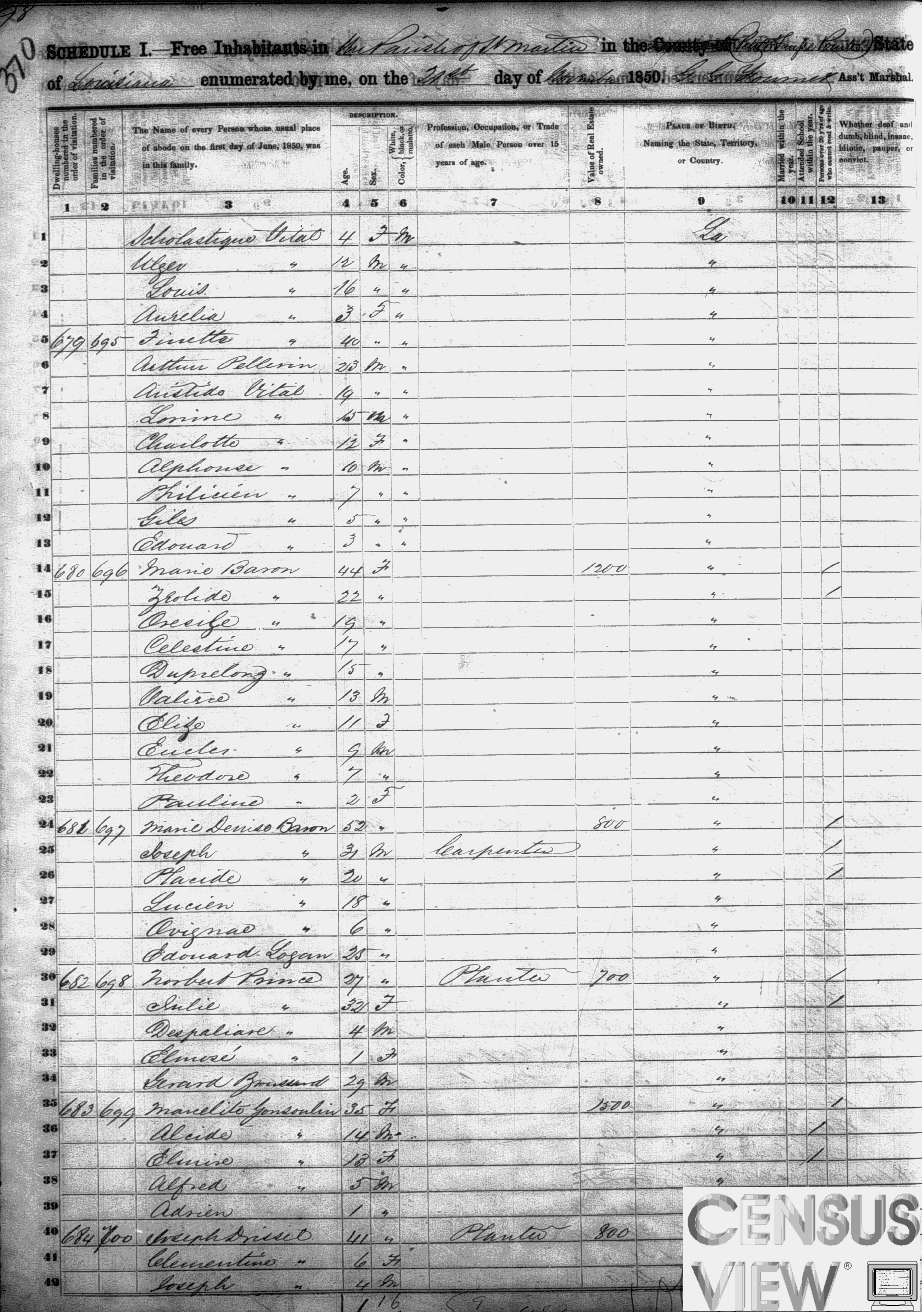 28
370
SCHEDULE I.—Free Inhabitants in the Parish of St Martin in the County of State
of Louisiana enumerated by me, on the day of 1850. Ass't Marshal.
Dwelling-houses numbered in the order of visitation.
Families numbered in the order of visitation.
The Name of every Person whose usual place of abode on the first day of June, 1850, was in this family.
DESCRIPTION.
Age.
Sex.
Color, White, black, or mulatto.
Profession, Occupation, or Trade of each Male Person over 15 years of age.
Value of Real Estate owned.
PLACE OF BIRTH, Naming the State, Territory, or Country.
Married within the year.
Attended School within the year.
Persons over 20 years of age who cannot read & write.
Whether deaf and dumb, blind, insane, idiotic, pauper, or convict.
1 2 3 4 5 6 7 8 9 10 11 12 13
1 Scholastique Vital 4 F M La
2 " 12 M " "
3 Louis " 16 " " "
4 Aurelia " 3 F " "
5 679 695 Finette 40 " " "
6 Arthur Pellerin 23 M " "
7 Aristide Vital 19 " " "
8 " 15 M " "
9 Charlotte " 12 F " "
10 Alphonse " 10 M " "
11 Philicien " 7 " " "
12 Giles " 5 " " "
13 Edouard " 3 " " "
14 680 696 Marie Baron 44 F 1200 " /
15 Zeolide " 22 " " /
16 " 19 " "
17 Celestine " 17 " "
18 Duprelong " 15 " "
19 " 13 M "
20 Elize " 11 F "
21 " 9 M "
22 Theodore " 7 " "
23 Pauline " 2 F "
24 681 697 Marie Denise Baron 52 " 800 " /
25 Joseph " 31 M Carpenter " /
26 Placide " 20 " " /
27 Lucien " 18 " "
28 Ovignac " 6 " "
29 Edouard Logan 25 " "
30 682 698 Norbert Prince 27 " Planter 700 " /
31 Julie " 32 F " /
32 Despaliare " 4 M "
33 Elmosé " 1 F "
34 Gerard Broussard 29 M "
35 683 699 Marcelite Gonsoulin 35 F 1500 " /
36 Alcide " 14 M " /
37 Elmire " 13 F " /
38 Alfred " 5 M "
39 Adrien " 1 "
40 684 700 Joseph 41 " Planter 800
41 Clementine " 6 F
42 Joseph " 4 M
CENSUS
VIEW®